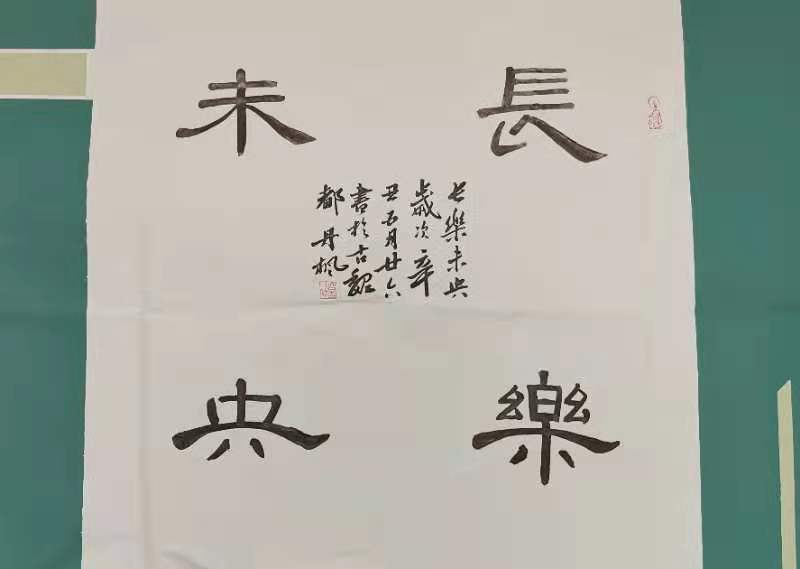 長樂
未央
长樂未央
歲次辛
丑五月廿六
書於古魏
都丹楓